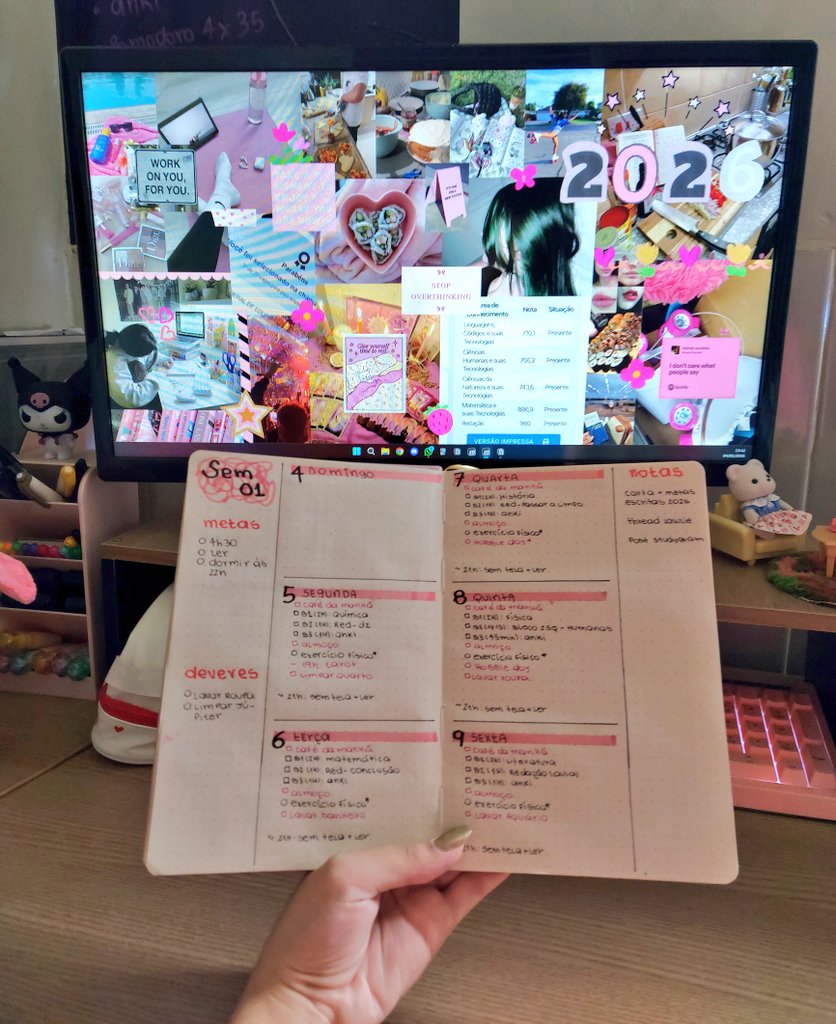 anki
pomodoro 4x35
WORK
ON YOU,
FOR YOU.
2026
Parabéns
Você foi selecionado na chama
STOP
OVERTHINKING
Área de
conhecimento Nota Situação
Linguagens,
Códigos e suas
Tecnologias
Presente
Ciências
Humanas e suas
Tecnologias
Presente
Ciências da
Natureza e suas
Tecnologias
Presente
Matemática e
suas Tecnologias
Presente
Redação 980 Presente
VERSÃO IMPRESSA
Give yourself
time to rest
I don't care what
people say
Spotify
Sem
01
metas
4h30
Ler
dormir às
22h
deveres
Lavar roupa
Limpar Jú-
piter
4 DOMINGO
5 SEGUNDA
café da manhã
B1(2H): química
B2(1H): Red-d2
B3(1H): anki
almoço
exercício físico*
- 19h tarot
Limpar quarto
~ 21h: sem tela + ler
6 terça
café da manhã
B1(2H): matemática
B2(1H): Red-conclusão
B3(1H): anki
almoço
exercício físico*
Lavar banheiro
~ 21h: sem tela + ler
7 QUARTA
café da manhã
B1(2H): história
B2(1H): Red-Passar a limpo
B3(1H): anki
almoço
exercício físico*
Hobbie day*
~ 21h: sem tela + ler
8 QUINTA
café da manhã
B1(2H): física
B2(1H15): Bloco 15Q - Humanas
B3(45min): anki
almoço
exercício físico*
Hobbie day
Lavar roupa
~ 21h: sem tela + ler
9 SEXTA
café da manhã
B1(2H): Literatura
B2(1H): Redação
B3(1H): anki
almoço
exercício físico*
Lavar aquário
21h: sem tela + ler
notas
carta + metas
escritas 2026
thread
Post studygram